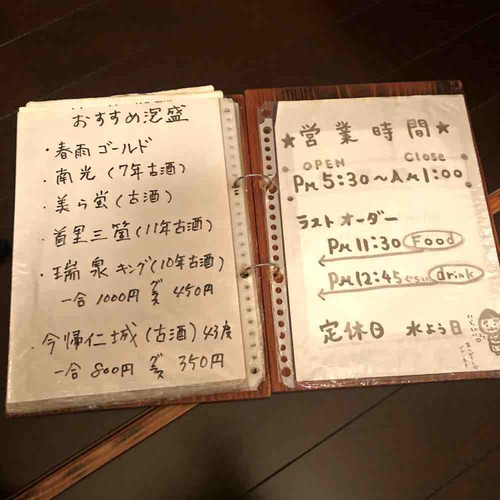 おすすめ泡盛
・春雨ゴールド
・南光(7年古酒)
・美ら蛍(古酒)
・首里三箇(11年古酒)
・瑞泉キング(10年古酒)
一合 1000円 グラス 450円
・今帰仁城(古酒)43度
一合 800円 グラス 350円
★営業時間★
OPEN Close
PM5:30~AM1:00
ラストオーダー
PM11:30 Food
PM12:45ぐらい drink
定休日 水よう日